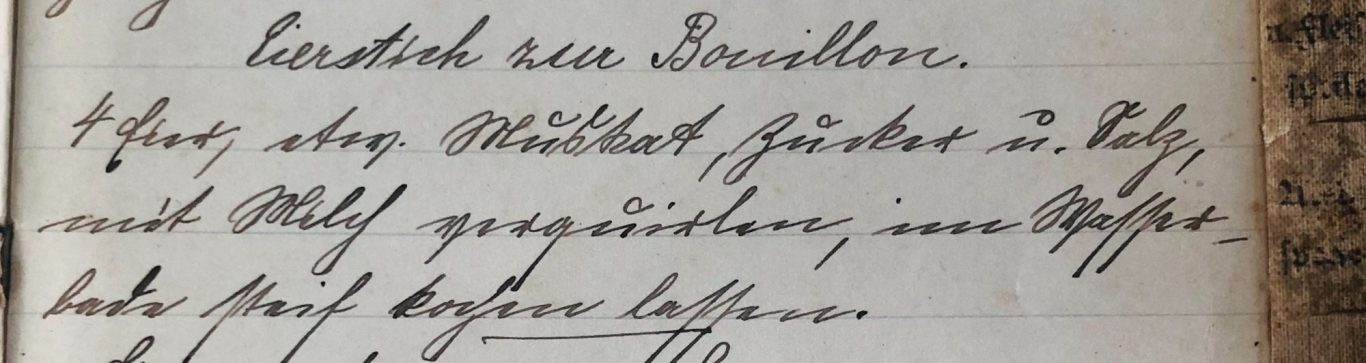 Eierstich zur Bouillon.
4 Eier, etw. Muskat, Zucker u. Salz,
mit Milch verquirlen, im Wasser-
bade steif kochen lassen.